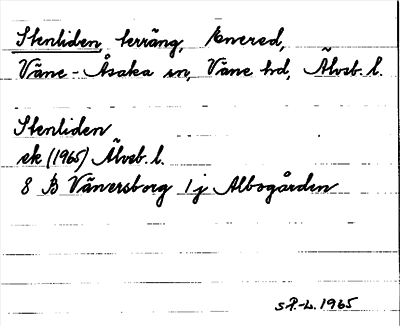 Stenliden, terräng, Enered,
Väne-Åsaka sn, Väne hd, Älvsb. l.
Stenliden
ek (1965) Älvsb. l.
8 B Vänersborg 1j Albogården
SP.-L. 1965